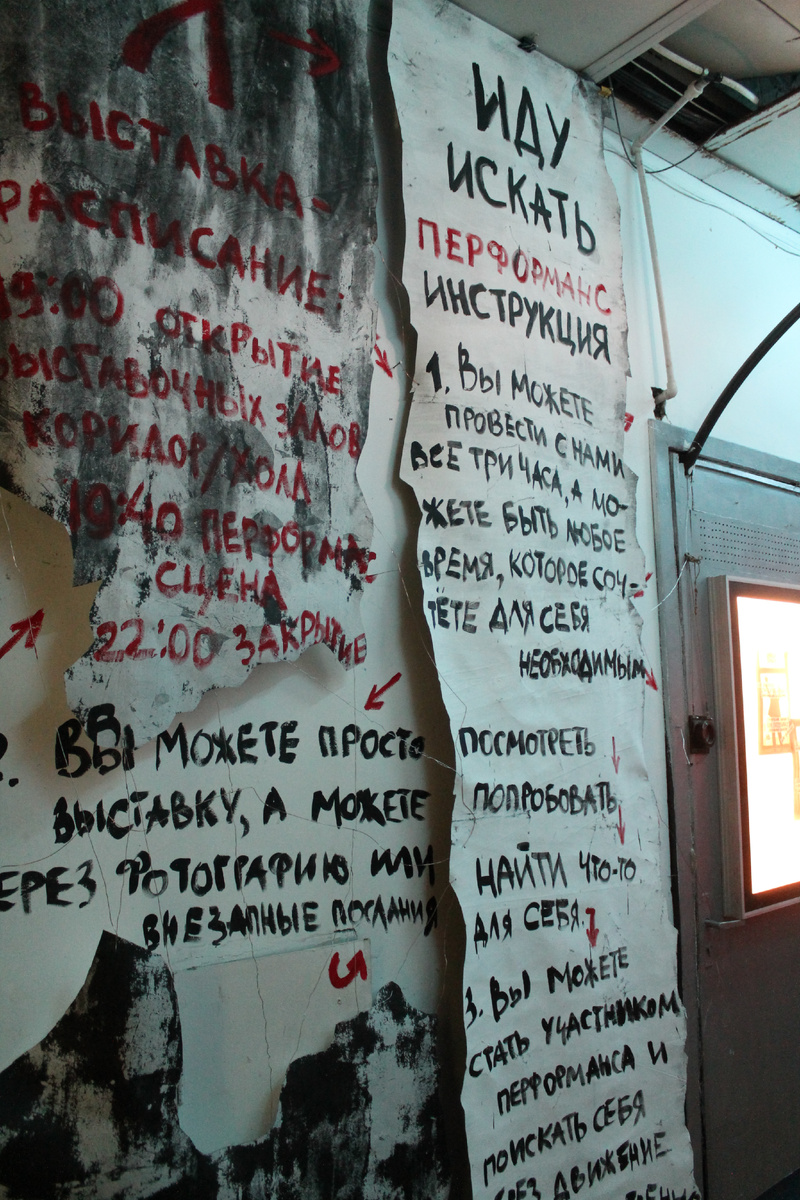 ВЫСТАВКА-
РАСПИСАНИЕ:
19:00 ОТКРЫТИЕ
ВЫСТАВОЧНЫХ ЗАЛОВ
КОРИДОР/ХОЛЛ
19:40 ПЕРФОРМАНС
СЦЕНА
22:00 ЗАКРЫТИЕ
ИДУ
ИСКАТЬ
ПЕРФОРМАНС
ИНСТРУКЦИЯ
1. ВЫ МОЖЕТЕ
ПРОВЕСТИ С НАМИ
ВСЕ ТРИ ЧАСА, А МО-
ЖЕТЕ БЫТЬ ЛЮБОЕ
ВРЕМЯ, КОТОРОЕ СОЧ-
ТЁТЕ ДЛЯ СЕБЯ
НЕОБХОДИМЫМ
2. ВЫ МОЖЕТЕ ПРОСТО ПОСМОТРЕТЬ
ВЫСТАВКУ, А МОЖЕТЕ ПОПРОБОВАТЬ
ЧЕРЕЗ ФОТОГРАФИЮ ИЛИ НАЙТИ ЧТО-ТО
ВНЕЗАПНЫЕ ПОСЛАНИЯ ДЛЯ СЕБЯ.
3. ВЫ МОЖЕТЕ
СТАТЬ УЧАСТНИКОМ
ПЕРФОРМАНСА И
ПОИСКАТЬ СЕБЯ
ЧЕРЕЗ ДВИЖЕНИЕ